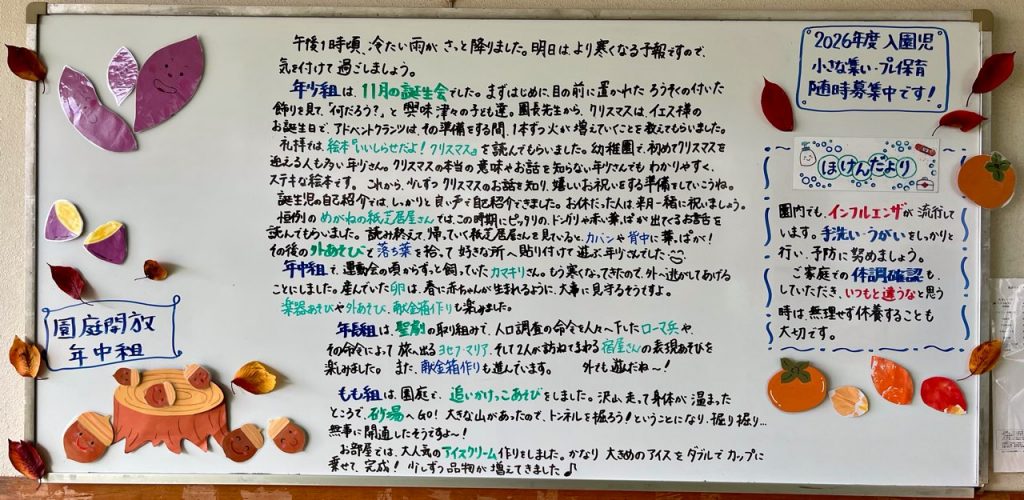 午後1時頃、冷たい雨が、さっと降りました。明日は、より寒くなる予報ですので、
気を付けて過ごしましょう。
年少組は、11月の誕生会でした。まずはじめに、目の前に置かれたろうそくの付いた
飾りを見て、「何だろう?」と興味津々の子ども達。園長先生から、クリスマスは、イエス様の
お誕生日で、アドベントクランツは、その準備をする間、1本ずつ火が増えていくことを教えてもらいました。
礼拝では、絵本『いいしらせだよ!クリスマス』を読んでもらいました。幼稚園で、初めてクリスマスを
迎える人も多い年少さん。クリスマスの本当の意味やお話を知らない年少さんでもわかりやすく、
ステキな絵本です。これから、少しずつクリスマスのお話を知り、嬉しいお祝いをする準備をしていこうね。
誕生児の自己紹介では、しっかりと良い声で自己紹介できました。お休だった人は、来月一緒に祝いましょう。
恒例のめがねの紙芝居屋さんでは、この時期にピッタリの、ドングリや赤い葉っぱが出てくるお話を
読んでもらいました。読み終えて、帰っていく紙芝居屋さんを見ていると、カバンや背中に葉っぱが!
その後の外あそびで落ち葉を拾って好きな所へ貼り付けて遊ぶ年少さんでした
年中組で、運動会の頃からずっと飼っていたカマキリさん。もう寒くなってきたので、外へ逃がしてあげる
ことにしました。産んでいた卵は、春に赤ちゃんが生まれるように、大事に見守るそうですよ。
楽器あそびや外あそび、献金箱作りも楽しみました。
年長組は、聖劇の取り組みで、人口調査の命令を人々へ下したローマ兵や、
その命令によって旅へ出るヨセフ・マリア、そして2人が訪ねてまわる宿屋さんの表現あそびを
楽しみました。また、献金箱作りも進んでいます。外でも遊んだね〜!
もも組は、園庭で、追いかけっこあそびをしました。沢山走って身体が温まった
ところで、砂場へGO!大きな山があったので、トンネルを掘ろう!ということになり、掘り掘り…
無事に開通したそうですよ〜!
お部屋では、大人気のアイスクリーム作りをしました。かなり大きめのアイスをダブルでカップに
乗せて、完成!少しずつ品物が増えてきました♪
園庭開放
年中組
2026年度入園児
小さな集い・プレ保育
随時募集中です!
ほけんだより
園内でも、インフルエンザが流行して
います。手洗い・うがいをしっかりと
行い、予防に努めましょう。
ご家庭での体調確認も、
していただき、いつもと違うなと思う
時は、無理せず休養することも
大切です。